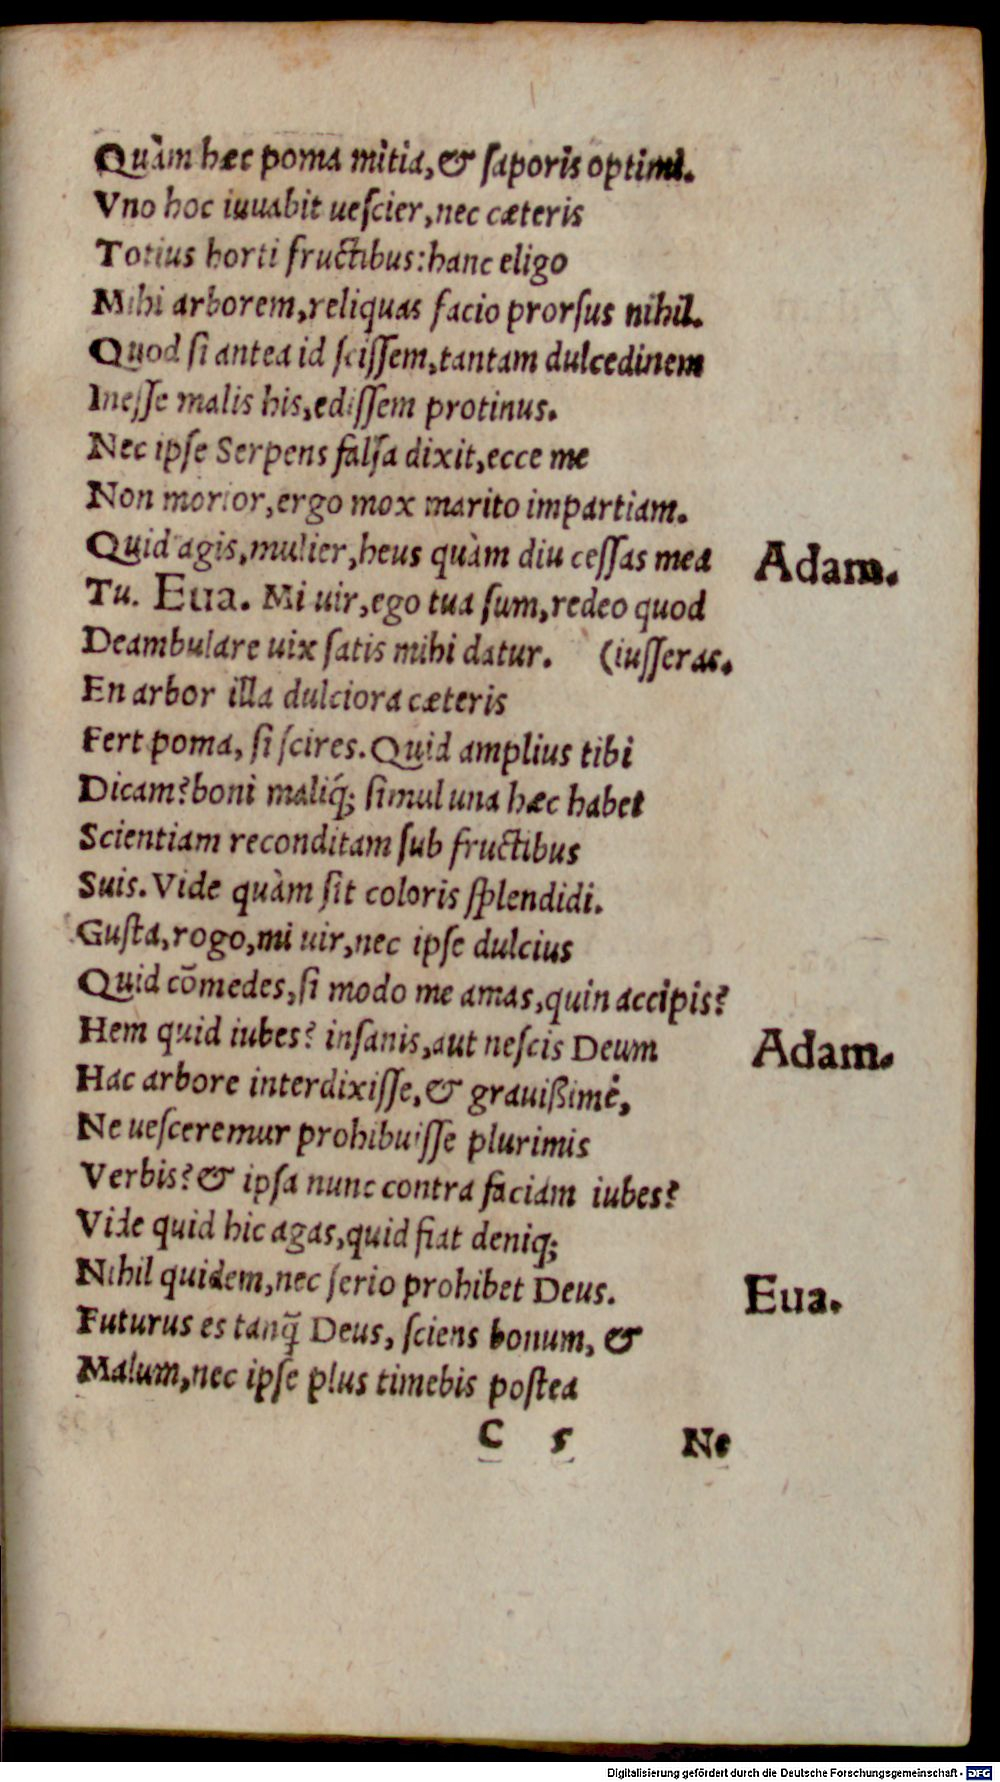 Quàm hæc poma mitia, & ſaporis optimi.
Vno hoc iuuabit ueſcier, nec cæteris
Totius horti fructibus: hanc eligo
Mihi arborem, reliquas facio prorſus nihil.
Quod ſi antea id ſciſſem, tantam dulcedinem
Ineſſe malis his, ediſſem protinus.
Nec ipſe Serpens falſa dixit, ecce me
Non morior, ergo mox marito impartiam.
Quid agis, mulier, heus quàm diu ceſſas mea Adam.
Tu. Eua. Mi uir, ego tua ſum, redeo quod
Deambulare uix ſatis mihi datur. (iuſſeras.
En arbor illa dulciora cæteris
Fert poma, ſi ſcires. Quid amplius tibi
Dicam? boni maliq́; ſimul una hæc habet
Scientiam reconditam ſub fructibus
Suis. Vide quàm ſit coloris ſplendidi.
Guſta, rogo, mi uir, nec ipſe dulcius
Quid cōmedes, ſi modo me amas, quin accipis?
Hem quid iubes? inſanis, aut neſcis Deum Adam.
Hac arbore interdixiſſe, & grauißimè,
Ne ueſceremur prohibuiſſe plurimis
Verbis? & ipſa nunc contra faciam iubes?
Vide quid hic agas, quid fiat deniq;
Nihil quidem, nec ſerio prohibet Deus. Eua.
Futurus es tanq̃ Deus, ſciens bonum, &
Malum, nec ipſe plus timebis poſtea
C 5 Ne
Digitalisierung gefördert durch die Deutsche Forschungsgemeinschaft - DFG